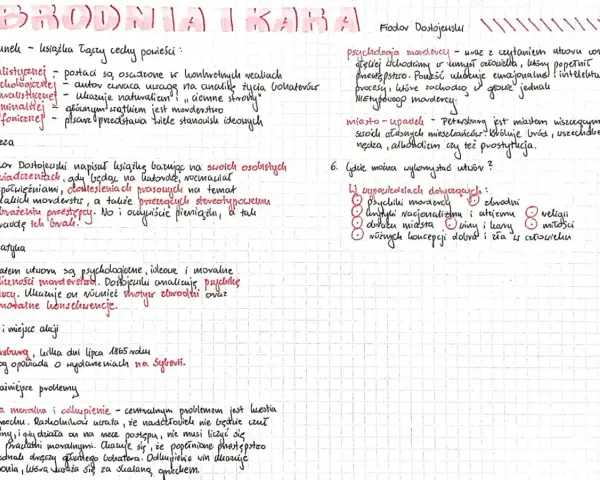 BRODNIA I KARA
Fiodor Dostojewski
unek – książka łączy cechy powieści :
listycznej – postaci są osadzone w konkretnych realiach
chologicznej – autor zwraca uwagę na analizę życia bohaterów
uralistycznej – ukazuje naturalizm i „ciemne strony"
minalnej – głównym wątkiem jest morderstwo
fonicznej – pisarz przedstawia wiele stanowisk ideowych
eza
or Dostojewski napisał książkę bazując na swoich osobistych
wiadczeniach, gdy będąc na katordze, rozmawiał
półwięźniami, doniesieniach prasowych na temat
morderstw, a także przeczących stereotypowemu
brażeniu przestępcy. No i oczywiście pieniądze, a tak
awdę ich brak.
atyka
atem utworu są psychologiczne, ideowe i moralne
liczności morderstwa. Dostojewski analizuje psychikę
wcy. Ukazuje on również motyw zbrodni oraz
moralne konsekwencje.
i miejsce akcji
rsburg, kilka dni lipca 1865 roku
og opowiada o wydarzeniach na Syberii.
ażniejsze problemy
a moralna i odkupienie – centralnym problemem jest kwestia
rzechu. Raskolnikow uważa, że nadczłowiek nie będzie czuł
iny, i gdy działa on na rzecz postępu, nie musi liczyć się
prawami moralnymi. Okazuje się, że popełnione przestępstwo
ednak dręczy głównego bohatera. Odkupienie win ukazuje
onia, która uważa się za skalaną grzechem.
psychologia mordercy – wraz z czytaniem utworu cor
głębiej wchodzimy w umysł człowieka, który popełnił
przestępstwo. Powieść ukazuje emocjonalne i intelektu
procesy, które zachodzą w głowie jednak
nietypowego mordercy.
miasto - upadek – Petersburg jest miastem niszczącym
swoich własnych mieszkańców. Króluje bród, wszechobe
nędza, alkoholizm czy też prostytucja.
6. Gdzie można wykorzystać utwór ?
W wypowiedziach dotyczących :
psychiki mordercy zbrodni
krytyki racjonalizmu i ateizmu religii
obrazu miasta winy i kary miłości
różnych koncepcji dobra i zła w człowieku